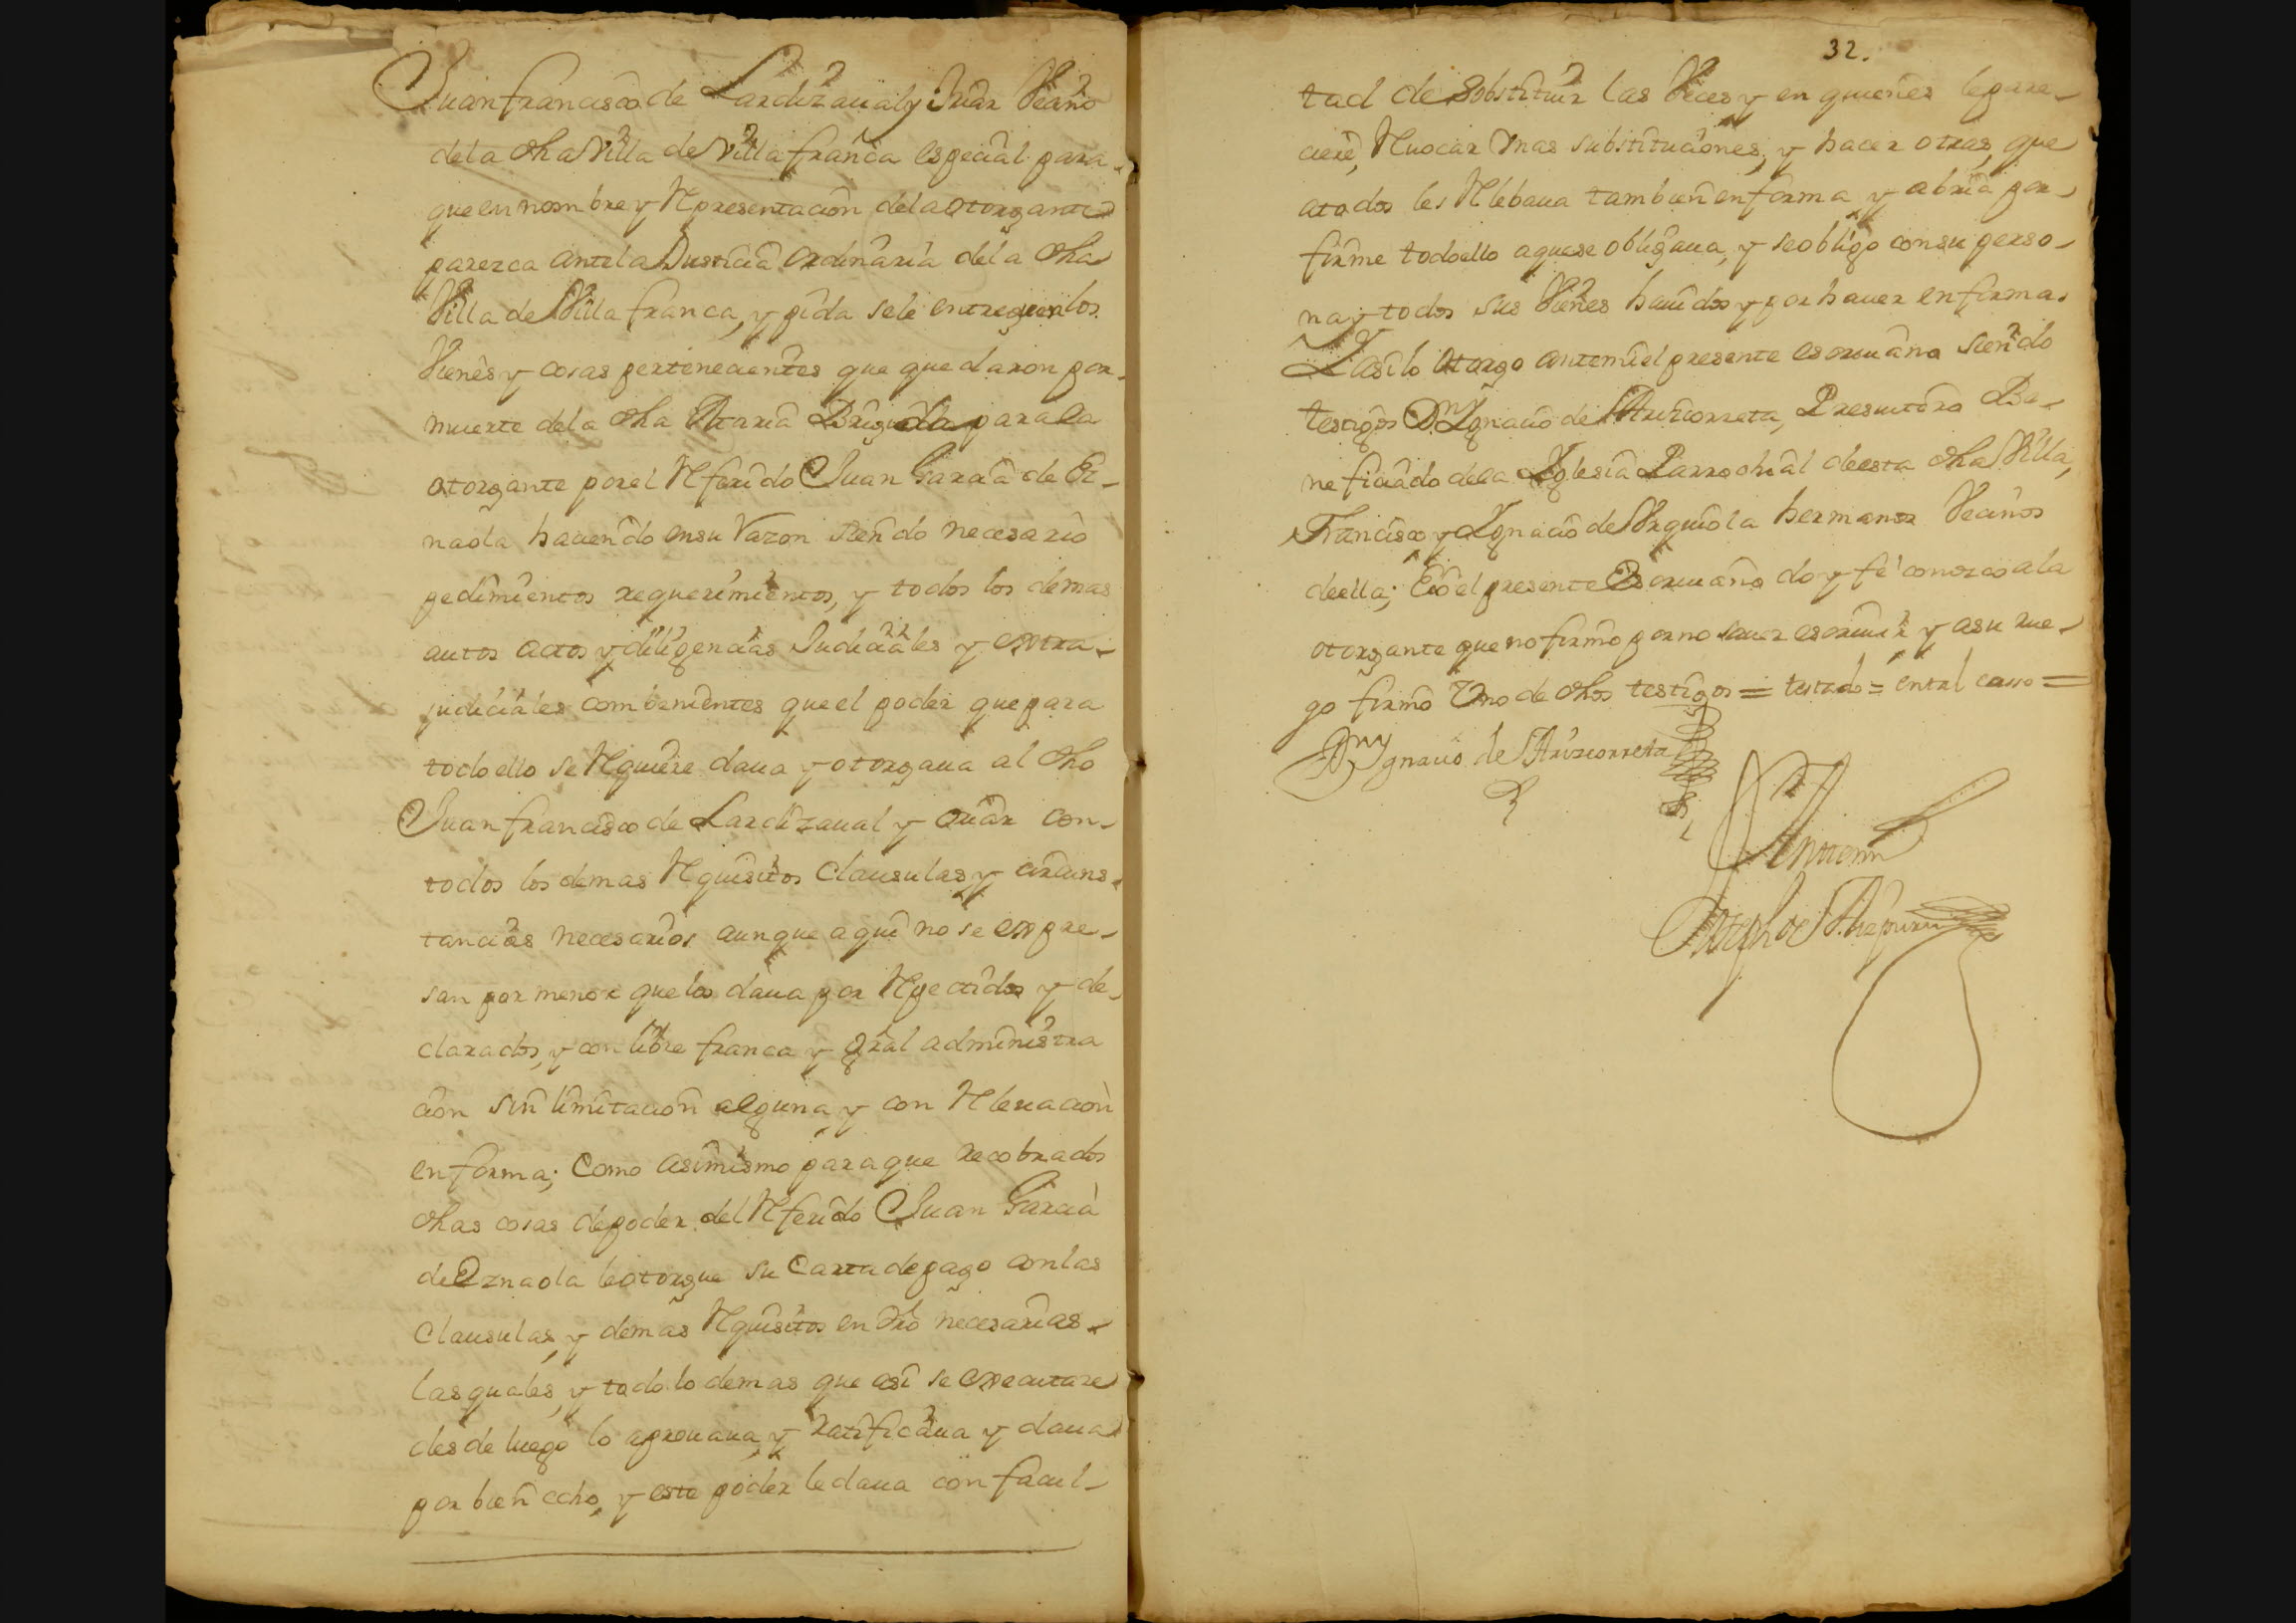 Juan francisco de Lardizaualy Ouar Vecino
dela dha Villa de Villafranca especial para
que en nombre y Representacion dela otorgante
parezca antela Justicia ordinaria dela dha
Villa de Villa franca, y pida sele entreguen los
Vienes y cosas pertenecientes que quedaron por
muerte dela dha Maria Brigida para la
otorgante por el Referido Juan Garcia de Ez-
naola haciendo en su Razon siendo necesario
pedimientos requerimientos, y todos los demas
autos actos y diligencias Judiciales y extra-
judiciales combenientes que el poder que para
todo ello se Requiere daua y otorgaua al dho
Juan francisco de Lardizaual y Ouar con-
todos los demas Requisitos Clausulas y circuns-
tancias necesarios aunque aqui no se expre-
san por menor que los daua por Repetidos y de-
clarados, y con libre franca y gral administra
cion sin limitacion alguna y con Relevacion
en forma; Como asimismo para que recobrados
dhas cosas depoder del Referido Juan Garcia
de Eznaola le otorgue su Carta de pago con las
Clausulas, y demas Requisitos en dro necesarias-
las quales, y todo lo demas que asi se executare
desde luego lo aprouaua, y ratificaua y daua
por bien echo, y este poder le daua con facul-
32.
tad de Substituir las Veces y en quienes lepare-
ciere, Reuocar Unas substituciones, y hacer otras, que
atodos les Relebaua tambien en forma, y abria por
firme todo ello aquese obligaua, y se obligo con su perso-
na y todos sus Vienes hauidos y por hauer en forma.
Y asi lo otorgo ante mi el presente escriuano siendo
testigos Dn Ygnacio de Arizcorreta, Presuitero Be-
neficiado dela Yglesia Parrochial de esta dha Villa,
Francisco y Ygnacio de Urquiola hermanos Vecinos
de ella; E yo el presente Escriuano doy fe conozco a la
otorgante que no firmo por no sauer escriuir y a su rue-
go firmo Uno de dhos testigos = testado = en tal casso =
Dn Ygnacio de Arizcorreta
Ante mi
Joseph de